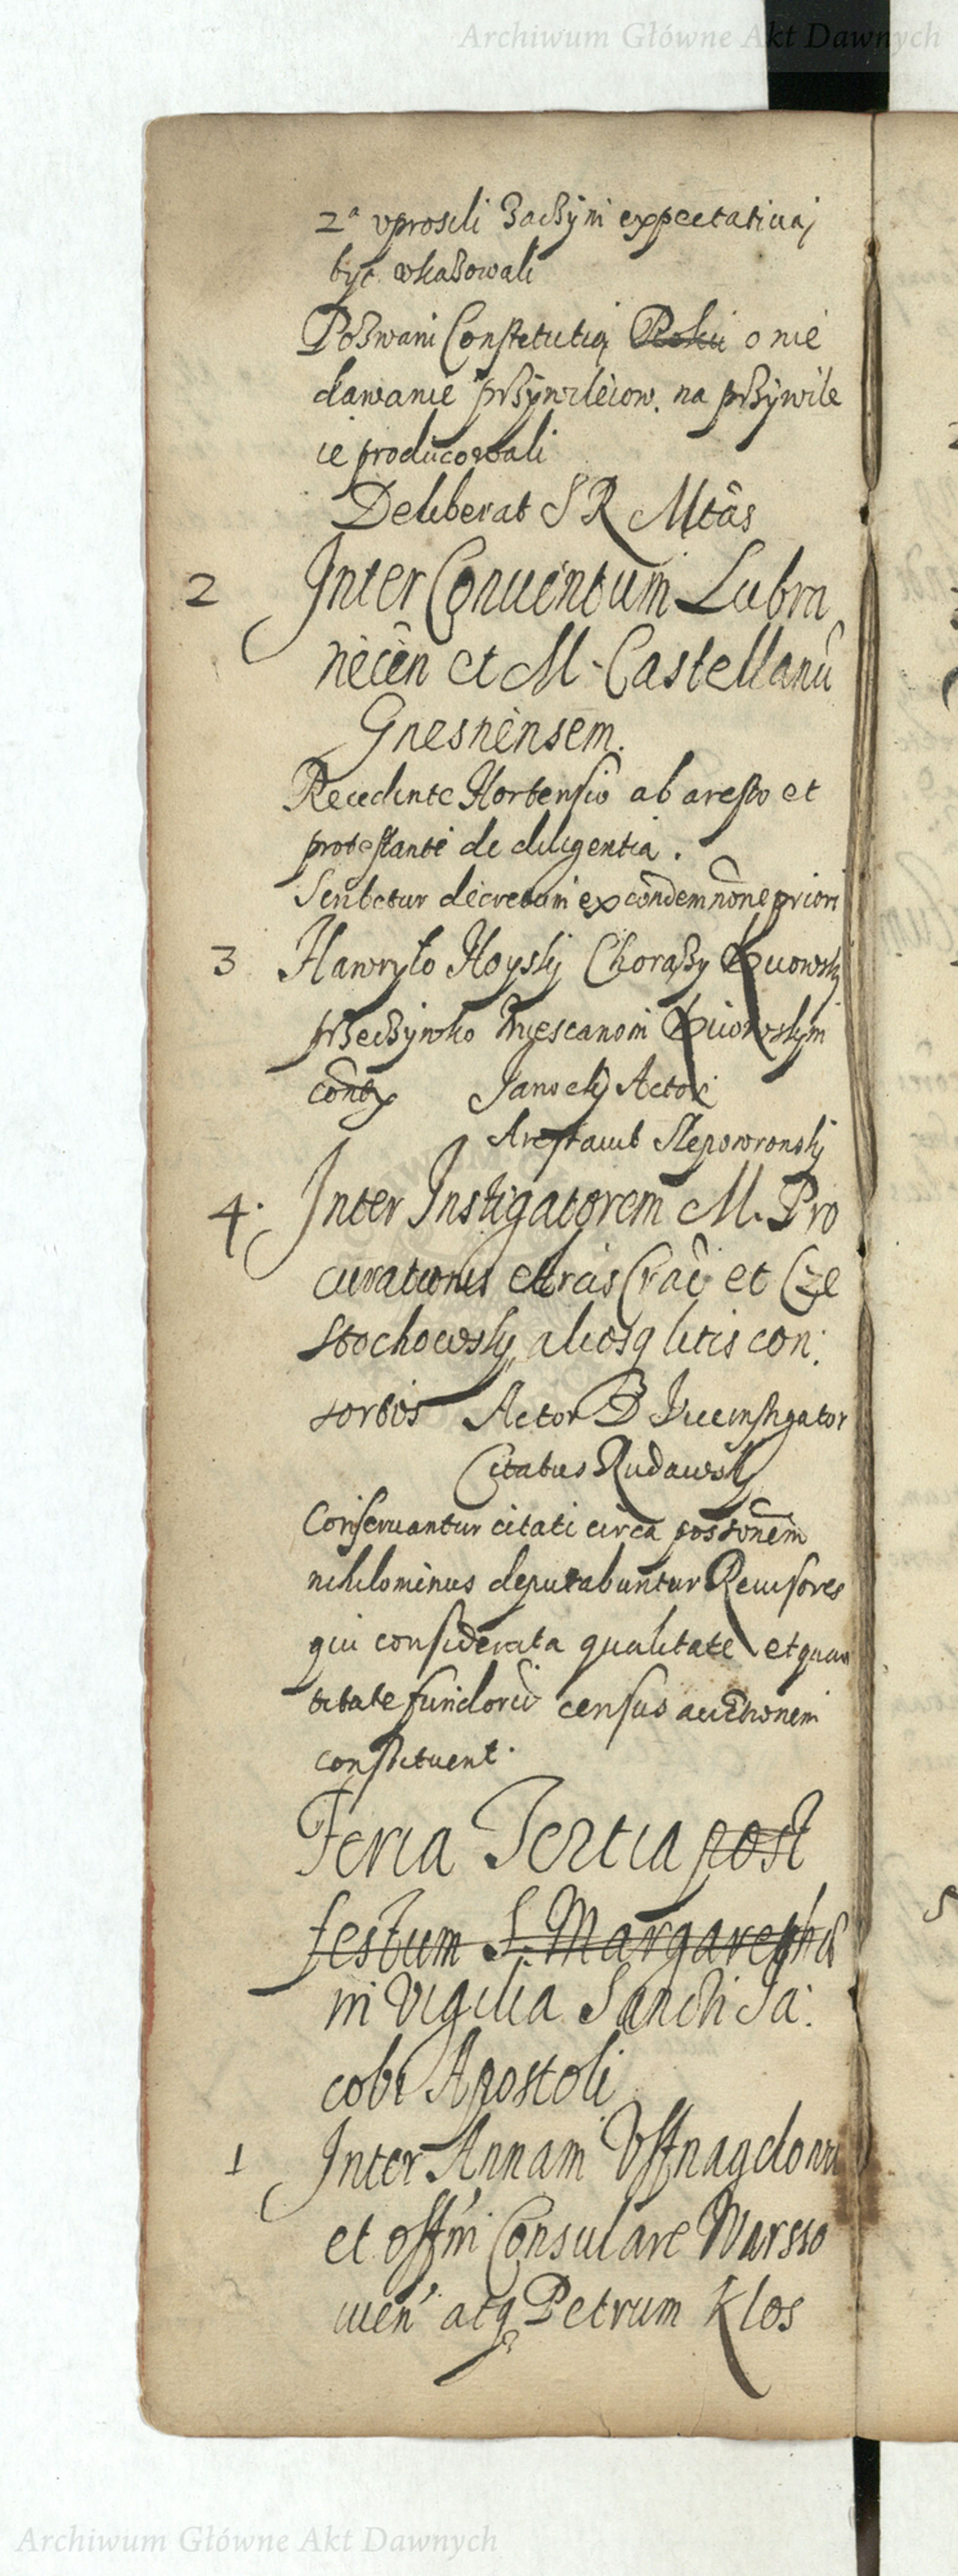 Archiwum Główne Akt Dawnych
2ª uprosili zaczym expectatiuaj
być wkazowali
Pozwani Constitutią Roku o nie
dawanie przywileiow. na przywile
ie producowali
Deliberat S R Mtas
2 Inter Conuentum Lubra
necen et M. Castellanū
Gnesnensem.
Recedente Hortensio ab aresto et
protestante de diligentia.
Scribetur decretum ex condemnōne priori
3 Hawryło Hoyskj Chorąży Kijowskj
przeciwko Miescanom Kijowskim
Actor
Arestauit Slepowronskj
4. Inter Instigatorem M. Pro
curationis Arcis Crac̄ et Cze
stochowskj aliosq litis con:
sortes Actor D Viceinstigator
Citatus Rudawskj
Conseruantur citati circa possonem
nihilominus deputabuntur Reuisores
qui considerata qualitate et quan
titate fundorū census auctionem
constituent.
Feria Tertia post
festum S. Margarethæ
in Vigilia Sancti Ja:
cobi Apostoli
1 Inter Annam
et offm Consulare Warsso
uien atq Petrum Klos
Archiwum Główne Akt Dawnych